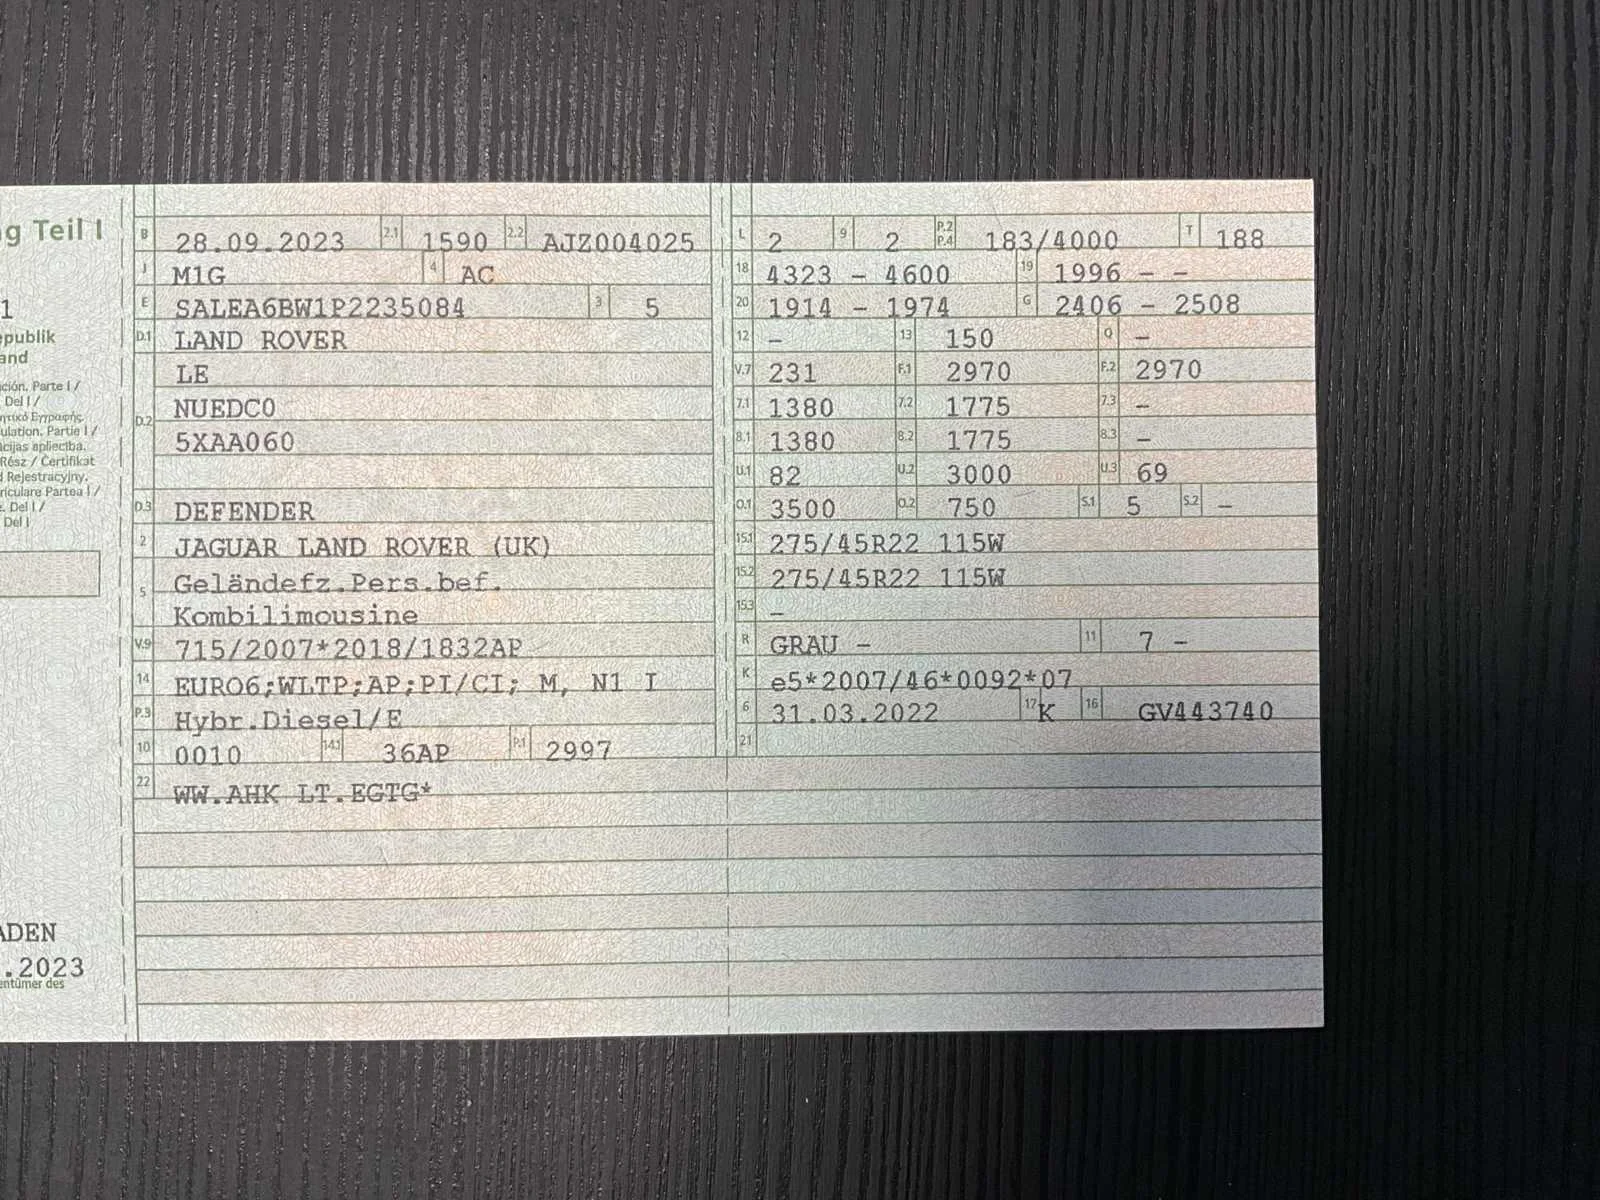 g Teil I
1
epublik
and
ción. Parte I /
Del I /
ητικό Εγγραφής.
ulation. Partie I /
cijas apliecība.
Rész / Certifikat
Rejestracyjny.
riculare Partea I /
Del I /
Del I
ADEN
.2023
entümer des
B 28.09.2023 2.1 1590 2.2 AJZ004025
J M1G 4 AC
E SALEA6BW1P2235084 3 5
D.1 LAND ROVER
LE
D.2 NUEDC0
5XAA060
D.3 DEFENDER
2 JAGUAR LAND ROVER (UK)
5 Geländefz.Pers.bef.
Kombilimousine
V.9 715/2007*2018/1832AP
14 EURO6;WLTP;AP;PI/CI; M, N1 I
P.3 Hybr.Diesel/E
10 0010 14.1 36AP P.1 2997
22 WW.AHK LT.EGTG*
L 2 9 2 P.2 P.4 183/4000 T 188
18 4323 - 4600 19 1996 - -
20 1914 - 1974 G 2406 - 2508
12 - 13 150 Q -
V.7 231 F.1 2970 F.2 2970
7.1 1380 7.2 1775 7.3 -
8.1 1380 8.2 1775 8.3 -
U.1 82 U.2 3000 U.3 69
O.1 3500 O.2 750 S.1 5 S.2 -
15.1 275/45R22 115W
15.2 275/45R22 115W
15.3 -
R GRAU - 11 7 -
K e5*2007/46*0092*07
6 31.03.2022 17 K 16 GV443740
21